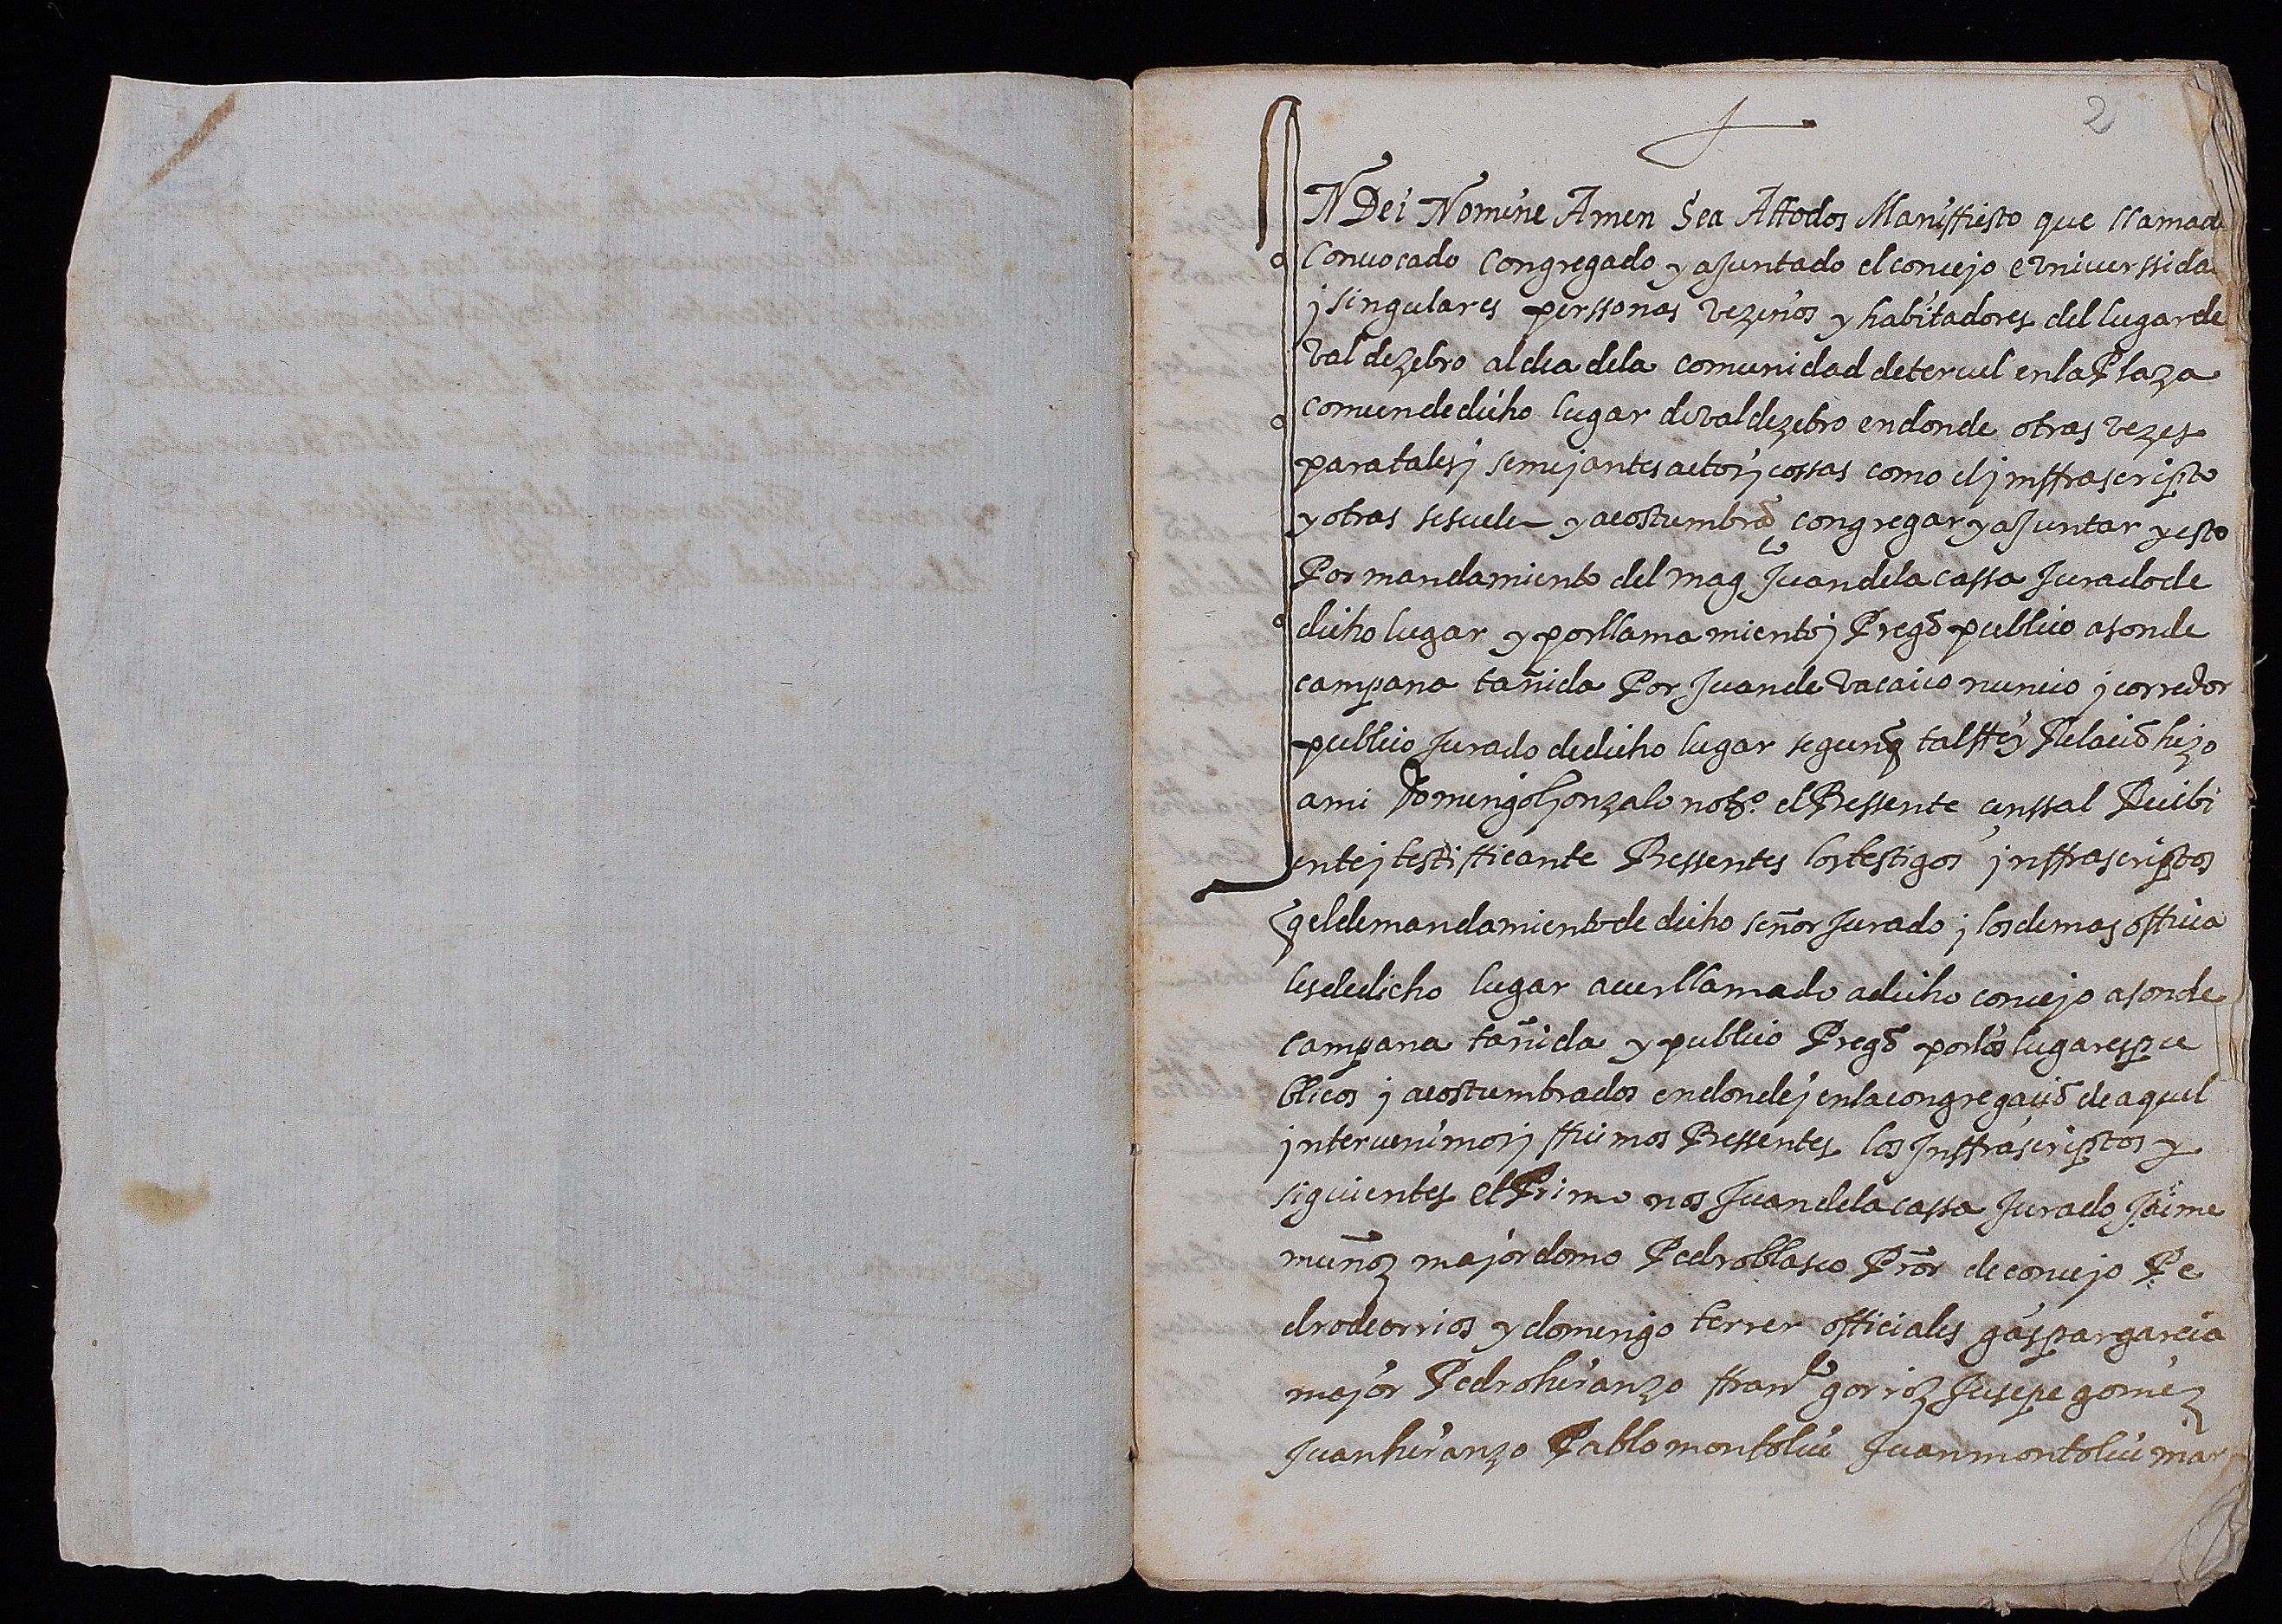 2
IN Dei Nomine Amen Sea Attodos Maniffiesto que llamad
Convocado Congregado y ajuntado el concejo e Universsida
j singulares perssonas vezinos y habitadores del lugar de
Valdezebro aldea dela comunidad deteruel enla Plaza
comun dedicho lugar de valdezebro endonde otras vezes
para tales j semejantes actos j cossas como el j inffrascripto
y otras sesuele y acostumbrã congregar y ajuntar y esto
Por mandamiento del mag.co Juan dela cassa Jurado de
dicho lugar y por llamamiento j Pregõ publico a son de
campana tañida Por Juan de vacaico nuncio j corredor
publico Jurado dedicho lugar segunq tal ffe y Relaciõ hizo
ami Domingo Gonzalo not.o el Pressente censsal Recibi
ente j testifficante Pressentes los testigos inffrascriptos
q el demandamiento de dicho señor Jurado j los demas officia
les dedicho lugar aver llamado a dicho concejo a son de
campana tañida y publico Pregõ por los lugares pu
blicos j acostumbrados endonde j enla congregaciõ de aquel
intervenimos j ffuimos Pressentes los Inffrascriptos y
siguientes et Primo nos Juan dela cassa Jurado Jaime
muñoz majordomo Pedro blasco Pror de concejo Pe
dro decorrios y domingo terrer officiales gaspar garcia
major Pedro hieranzo ffran.co gorriz Jusepe gomez
Juan hieranzo Pablo montoliu Juan montoliu mar